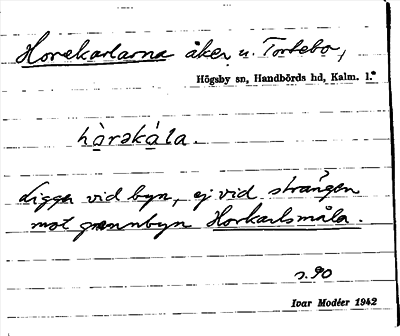 Horekarlarna åker u. Torlebo,
Högsby sn, Handbörds hd, Kalm. l.
hò̱rəká̱la.
Ligga vid byn, ej vid strången
mot grannbyn Horkarlsmåla.
s.90
Ivar Modéer 1942